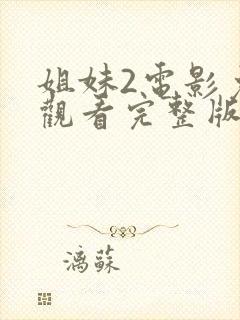 姐妹2电影
觀看完整版
漓蘇